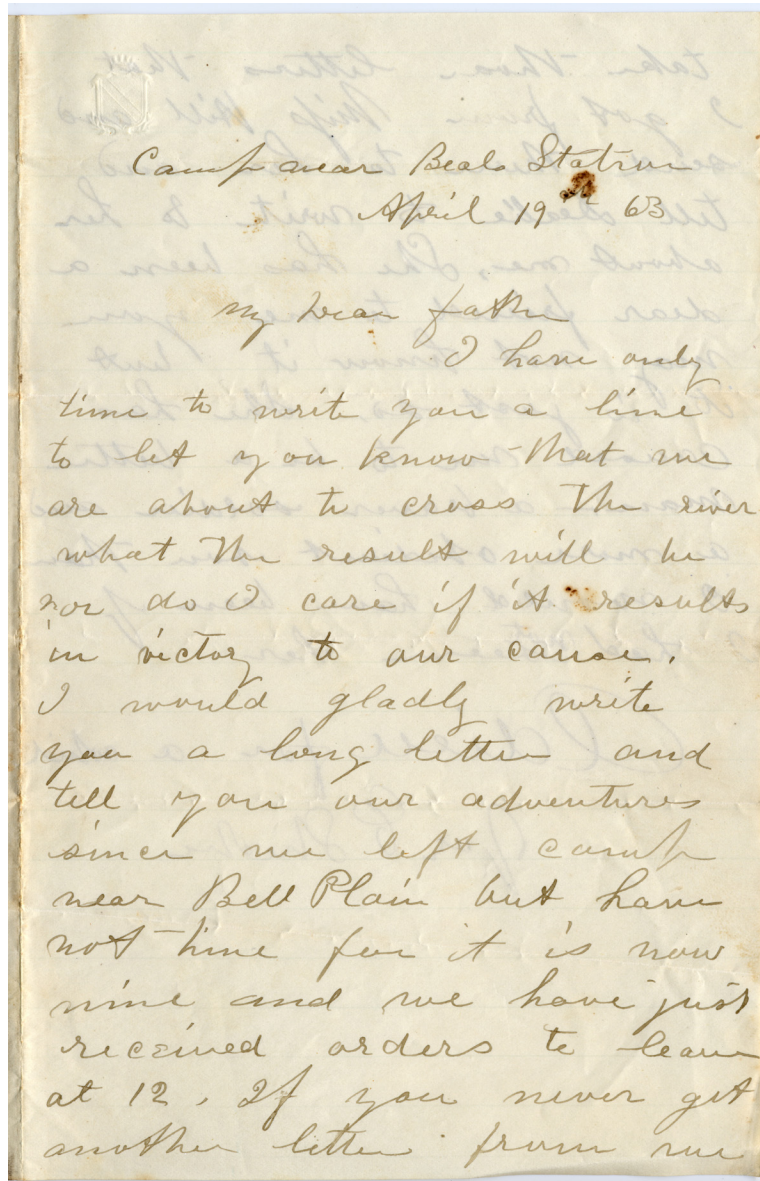 Camp near Beal Station
April 19th 63
My Dear father
I have only
time to write you a line
to let you know that we
are about to cross the river
what the result will be
nor do I care if it results
in victory to our cause.
I would gladly write
you a long letter and
tell you our adventures
since we left camp
near Bell Plain but have
not time for it is now
nine and we have just
received orders to leave
at 12. If you never get
another letter from me